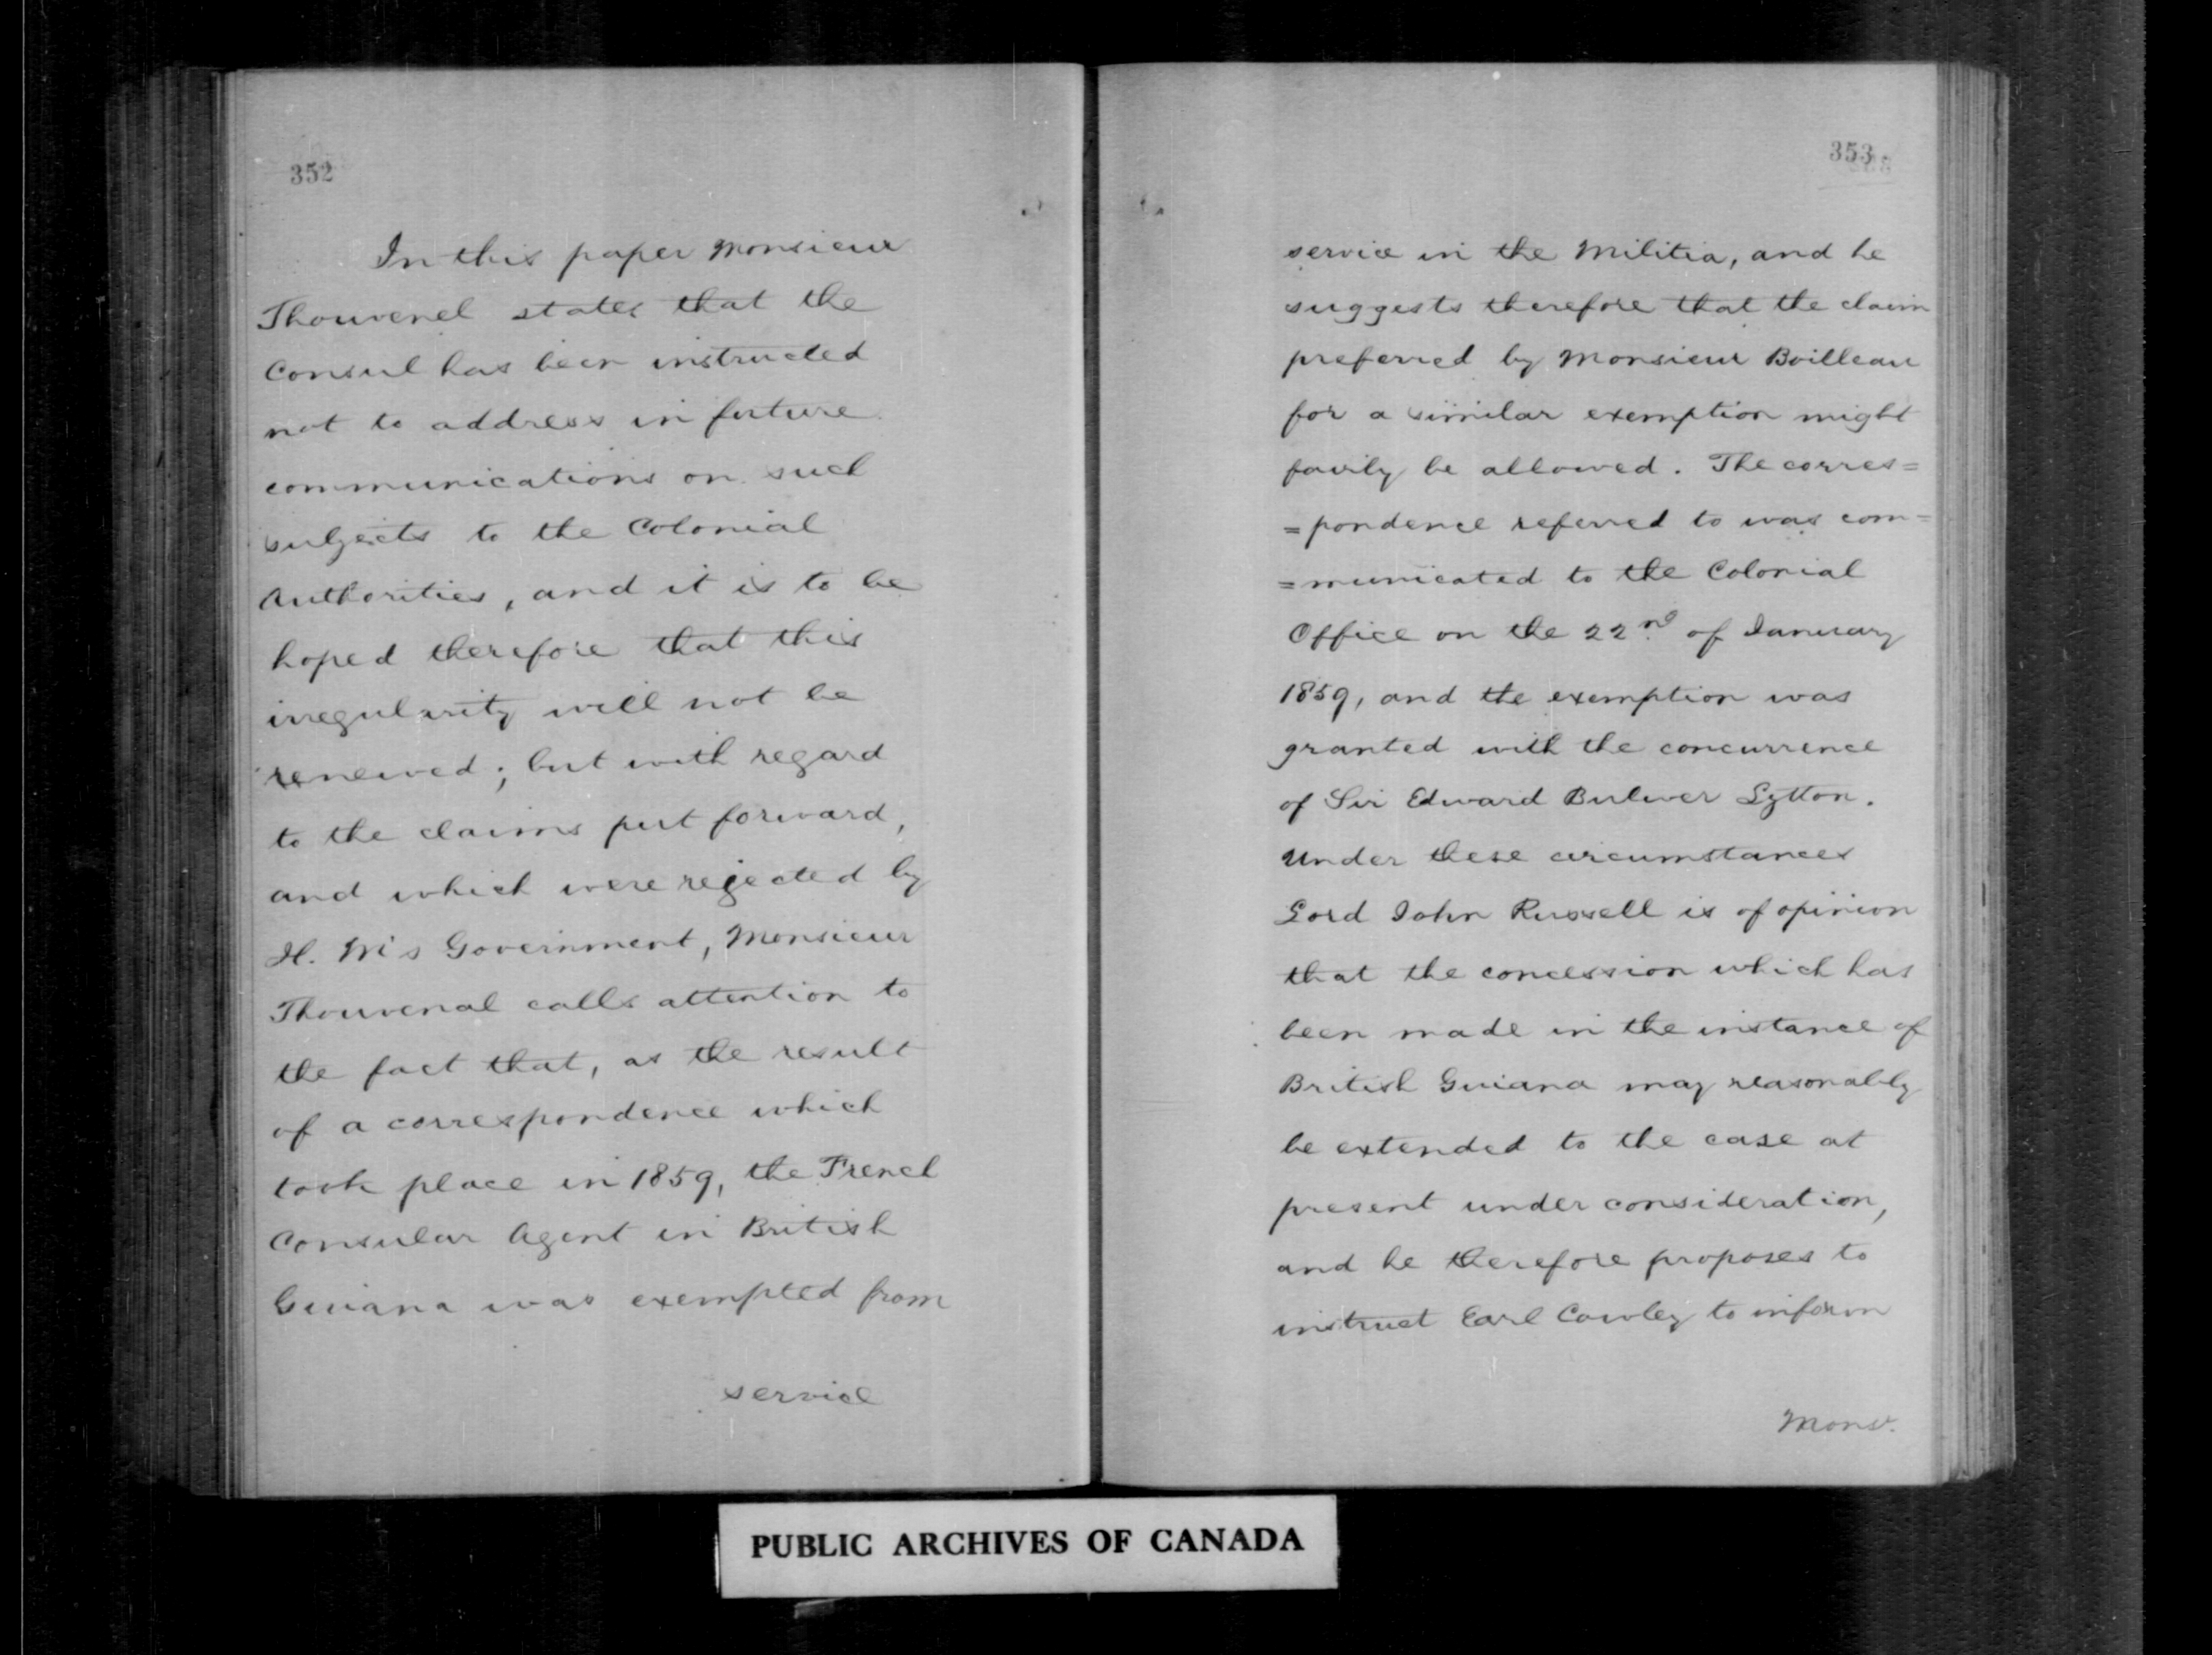 352
In this paper Monsieur
Thouvenel states that the
Consul has been instructed
not to address in future
communications on such
subjects to the Colonial
Authorities, and it is to be
hoped therefore that this
irregularity will not be
renewed; but with regard
to the claims put forward,
and which were rejected by
H. M's Government, Monsieur
Thouvenal calls attention to
the fact that, as the result
of a correspondence which
took place in 1859, the French
Consular Agent in British
Guiana was exempted from
service
353
service in the Militia, and he
suggests therefore that the claim
preferred by Monsieur Boilleau
for a similar exemption might
fairly be allowed. The corres=
=pondence referred to was com=
=municated to the Colonial
Office on the 22nd of January
1859, and the exemption was
granted with the concurrence
of Sir Edward Bulwer Lytton.
Under these circumstances
Lord John Russell is of opinion
that the concession which has
been made in the instance of
British Guiana may reasonably
be extended to the case at
present under consideration,
and he therefore proposes to
instruct Earl Cowley to inform
Monsr.
PUBLIC ARCHIVES OF CANADA